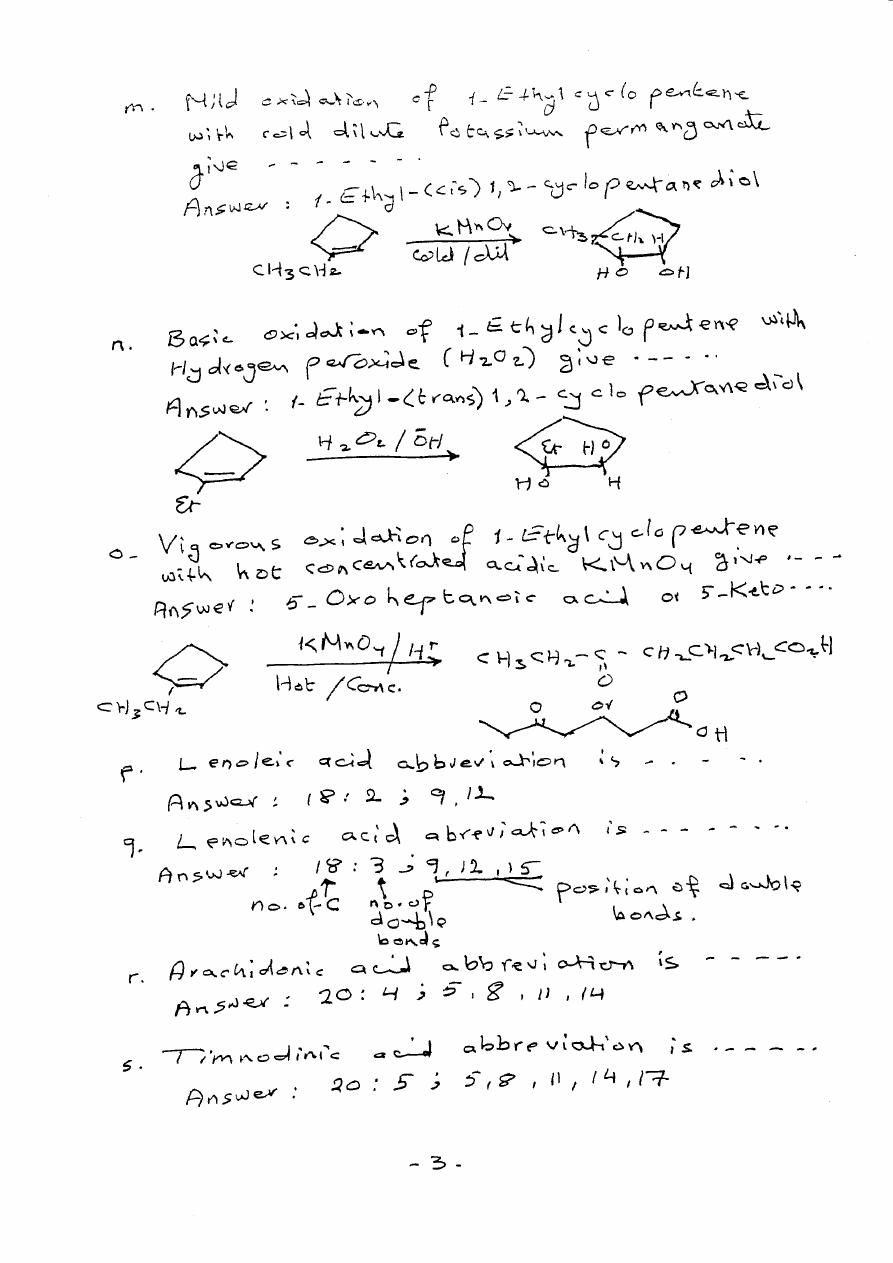 m. Mild oxidation of 1-Ethylcyclopentene
with cold dilute Potassium permanganate
give - - - - - - -
Answer : 1-Ethyl-(cis) 1,2-cyclopentanediol
CH3CH2
KMnO4
cold/dil
CH3 CH2 H
HO OH
n. Basic oxidation of 1-Ethylcyclopentene with
Hydrogen peroxide (H2O2) give - - - - - -
Answer : 1-Ethyl-(trans) 1,2-cyclopentanediol
Et
H2O2/ŌH
Et HO
HO H
o- Vigorous oxidation of 1-Ethylcyclopentene
with hot concentrated acidic KMnO4 give - - - -
Answer : 5-Oxoheptanoic acid or 5-Keto- - - -
CH3CH2
KMnO4/H+
Hot/Conc.
CH3CH2-C-CH2CH2CH2CO2H
O
or
O O
OH
p. Lenoleic acid abbveviation is - - - - - -
Answer : 18:2 ; 9,12
q. Lenolenic acid abreviation is - - - - - - - -
Answer : 18 : 3 ; 9, 12 ,15
no. of-C no. of double bonds position of double bonds.
r. Arachidonic acid abbreviation is - - - - -
Answer : 20 : 4 ; 5 , 8 , 11 , 14
s. Timnodinic acid abbreviation is - - - - - -
Answer : 20 : 5 ; 5,8 , 11 , 14 ,17
- 3 -